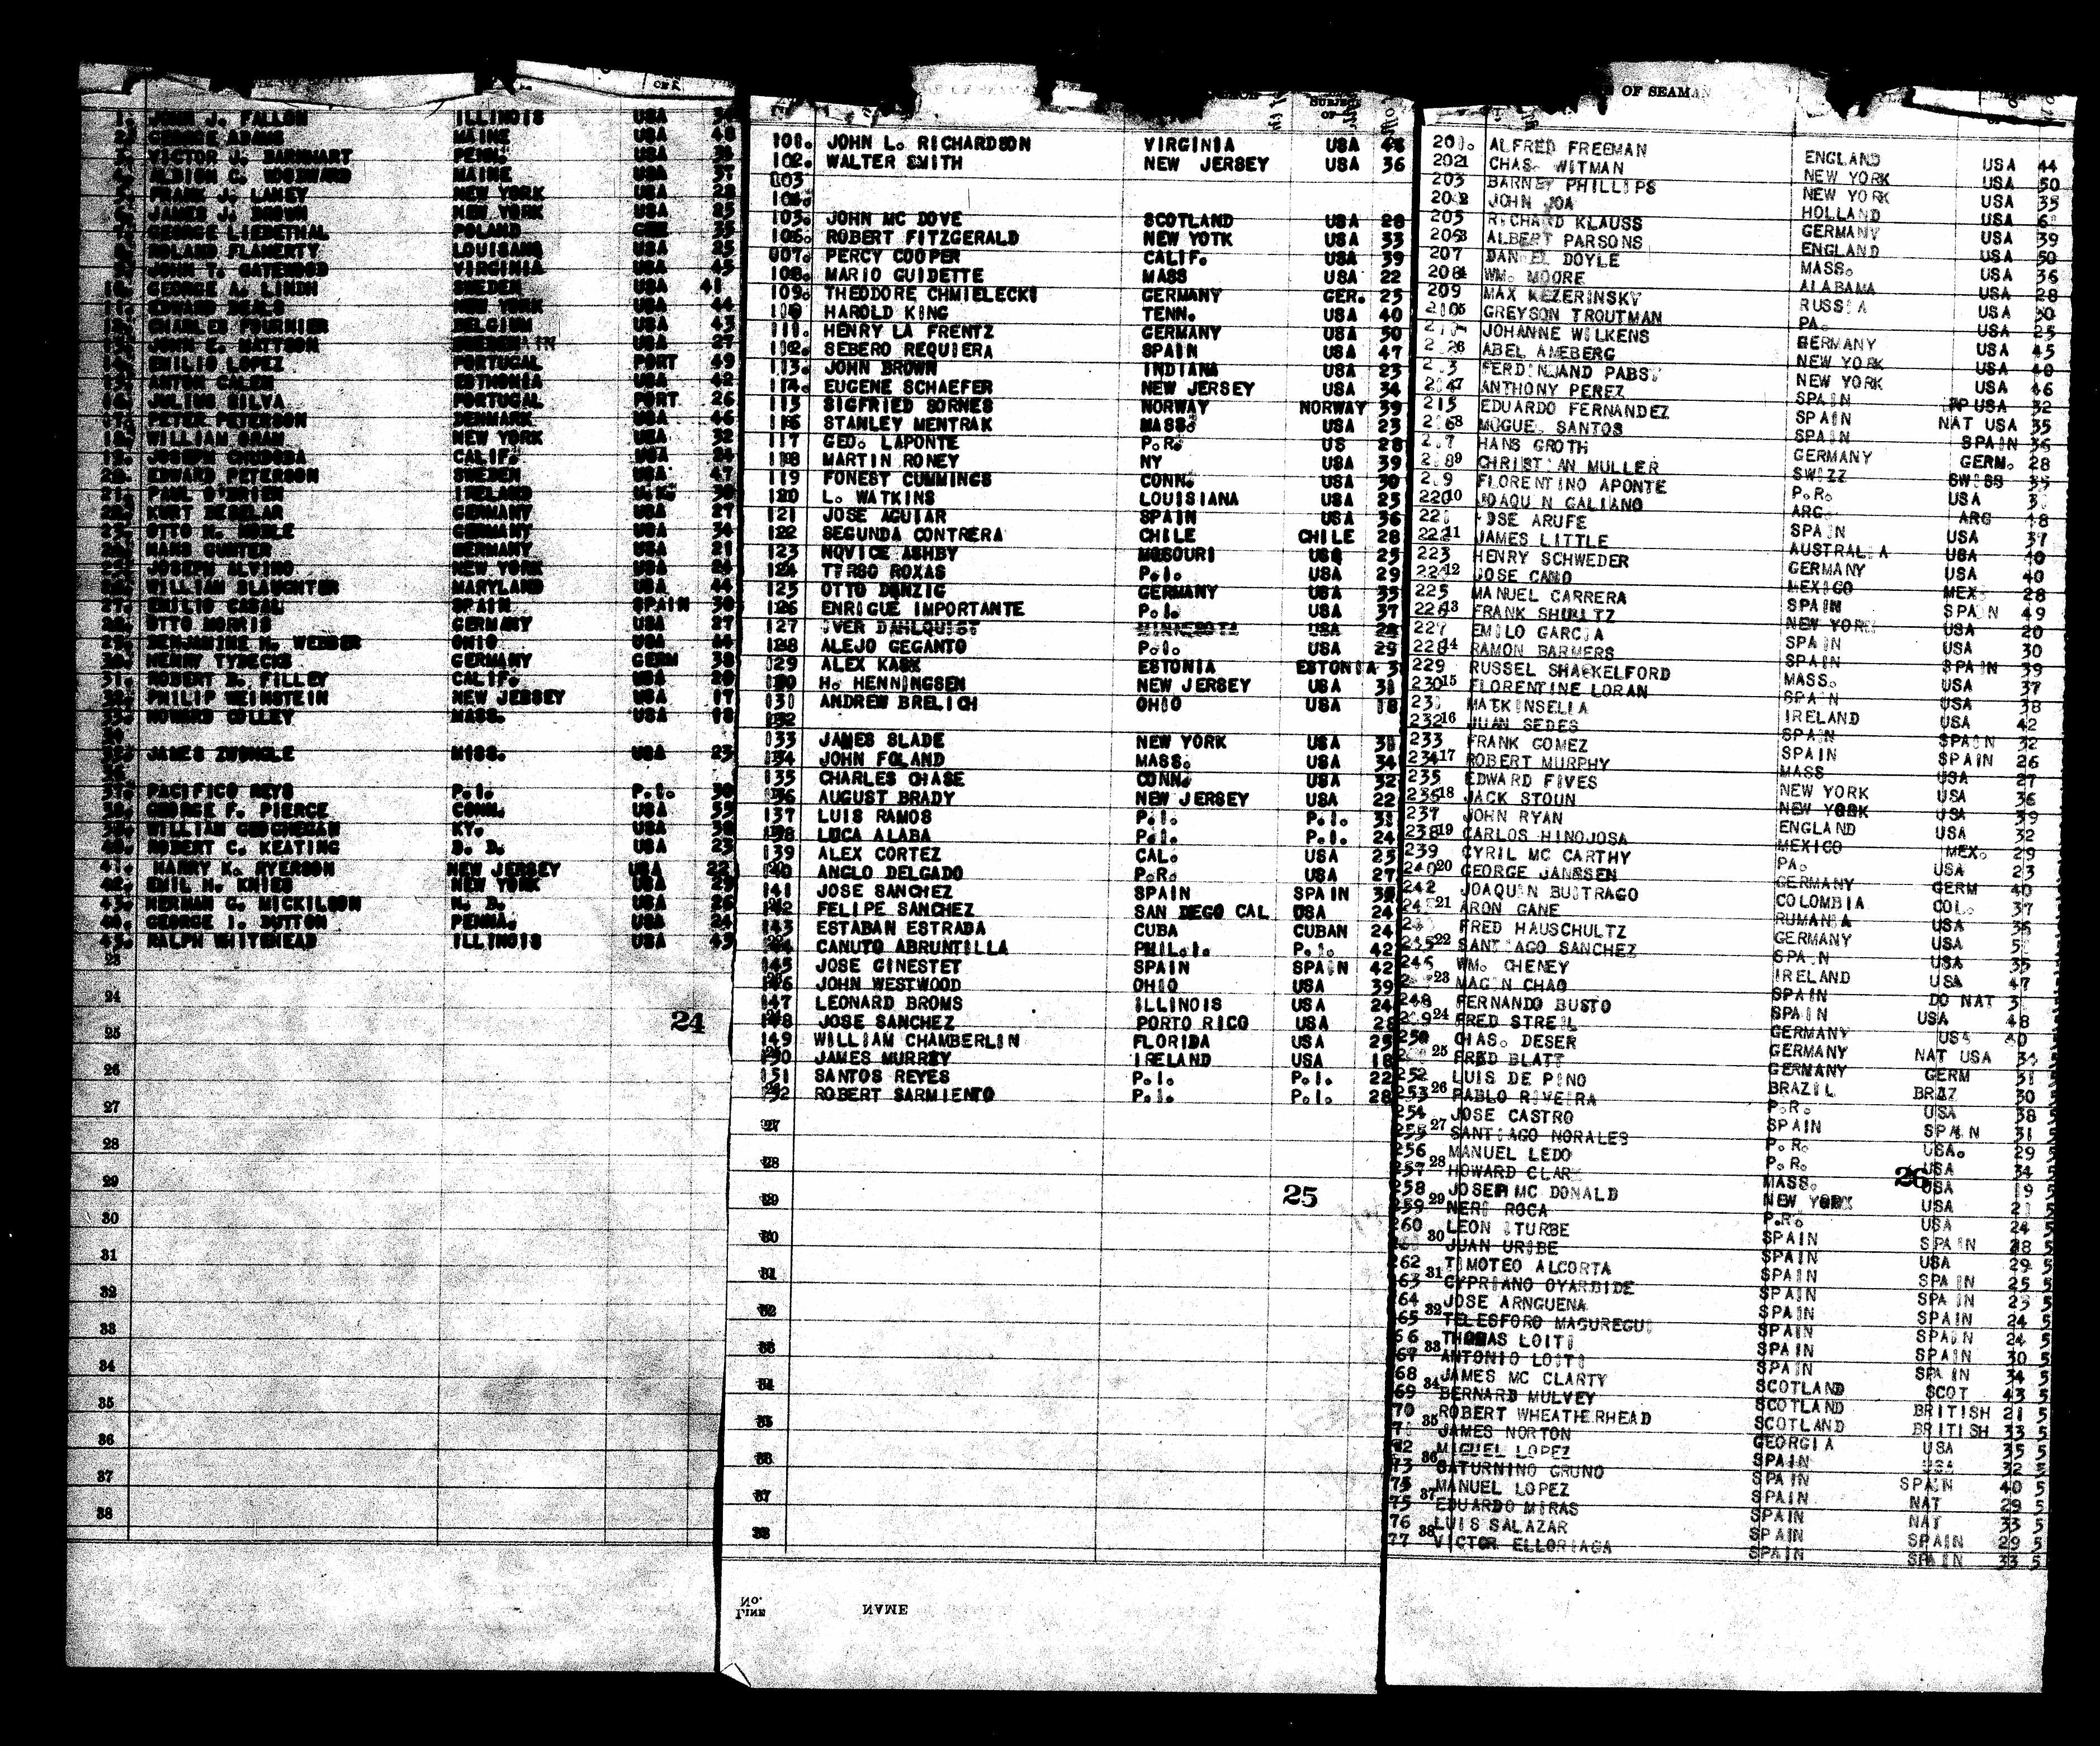 1. JOHN J. FALLON ILLINOIS USA
2. GEORGE ADAMS MAINE USA 48
3. VICTOR J. BARNHART PENN. USA
4. ALBION C. WOODWARD MAINE USA 37
5. FRANK J. LAHEY NEW YORK USA 28
6. JAMES J. BROWN NEW YORK USA 25
7. GEORGE LIEBETHAL POLAND GER 35
8. ROLAND FLAHERTY LOUISANA USA 25
9. JOHN T. GATEWOOD VIRGINIA USA 45
10. GEORGE A. LINDH SWEDEN USA 41
11. EDWARD NEW YORK USA 44
12. CHARLES FOURNIER BELGIUM USA 43
13. JOHN E. MATTSON USA 27
14. EMILIO LOPEZ PORTUGAL PORT 49
15. ANTON CALEN ESTHONIA USA 42
16. JULIUS SILVA PORTUGAL PORT 26
17. PETER PETERSON DENMARK USA 46
18. WILLIAM GRAM NEW YORK USA 32
19. JOSEPH CALIF. USA 24
20. EDWARD PETERSON SWEDEN USA 47
21. PAUL O'BRIEN IRELAND U.K. 30
22. KURT GERMANY USA 27
23. OTTO H. NOBLE GERMANY USA 34
24. HANS GUNTER GERMANY USA 21
25. JOSEPH ALVINO NEW YORK USA 24
26. WILLIAM SLAUGHTER MARYLAND USA 44
27. EMILIO CASAL SPAIN SPAIN 30
28. OTTO MORRIS GERMANY USA 27
29. BENJAMINE H. WEBBER OHIO USA 44
30. HENRY TYBECKS GERMANY GERM 38
31. ROBERT B. FILLEY CALIF. USA 20
32. PHILIP WEINSTEIN NEW JERSEY USA 17
33. HOWARD COLLEY MASS. USA 18
34.
35. JAMES ZWINGLE MISS. USA 23
36.
37. PACIFICO REYS P.I. P.I. 30
38. GEORGE F. PIERCE CONN. USA 55
39. WILLIAM GEOGHEGAN KY. USA 30
40. ROBERT C. KEATING USA 23
41. HARRY K. RYERSON NEW JERSEY USA 22
42. EMIL H. KNIES NEW YORK USA 29
43. HERMAN G. MICKILSON N. D. USA 26
44. GEORGE I. DUTTON PENNA. USA 24
45. RALPH WHITEHEAD ILLINOIS USA 43
23
24
24
25
26
27
28
29
30
31
32
33
34
35
36
37
38
SUBJECT
101. JOHN L. RICHARDSON VIRGINIA USA
102. WALTER SMITH NEW JERSEY USA 36
103
104.
105. JOHN MC DOVE SCOTLAND USA 28
106. ROBERT FITZGERALD NEW YOTK USA 33
007. PERCY COOPER CALIF. USA 39
108. MARIO GUIDETTE MASS USA 22
109. THEODORE CHMIELECKI GERMANY GER. 25
HAROLD KING TENN. USA 40
111. HENRY LA FRENTZ GERMANY USA 50
112. SEBERO REQUIERA SPAIN USA 47
113. JOHN BROWN INDIANA USA 23
114. EUGENE SCHAEFER NEW JERSEY USA 34
115 SIGFRIED SORNES NORWAY NORWAY 39
116 STANLEY MENTRAK MASS. USA 23
117 GEO. LAPONTE P.R. US 28
118 MARTIN RONEY NY USA 39
119 FONEST CUMMINGS CONN. USA 30
120 L. WATKINS LOUISIANA USA 25
121 JOSE AGUIAR SPAIN USA 36
122 SEGUNDA CONTRERA CHILE CHILE 28
123 NOVICE ASHBY MOSOURI USA 25
124 TYRSO ROXAS P.I. USA 29
125 OTTO DENZIG GERMANY USA 35
126 ENRIGUE IMPORTANTE P.I. USA 37
127 IVER DAHLQUIST MINNESOTA USA
128 ALEJO GEGANTO P.I. USA 29
129 ALEX KASK ESTONIA ESTONIA
130 H. HENNINGSEN NEW JERSEY USA 31
131 ANDREW BRELICH OHIO USA 18
132
133 JAMES SLADE NEW YORK USA
134 JOHN FOLAND MASS. USA 34
135 CHARLES CHASE CONN. USA 32
136 AUGUST BRADY NEW JERSEY USA 22
137 LUIS RAMOS P.I. P.I. 31
138 LUCA ALABA P.I. P.I. 24
139 ALEX CORTEZ CAL. USA 25
140 ANGLO DELGADO P.R. USA 27
141 JOSE SANCHEZ SPAIN SPAIN
142 FELIPE SANCHEZ SAN DEGO CAL USA 24
143 ESTABAN ESTRADA CUBA CUBAN 24
144 CANUTO ABRUNTILLA PHIL.I. P.I. 42
145 JOSE GINESTET SPAIN SPAIN 42
146 JOHN WESTWOOD OHIO USA 39
147 LEONARD BROMS ILLINOIS USA 24
148 JOSE SANCHEZ PORTO RICO USA 28
149 WILLIAM CHAMBERLIN FLORIDA USA 25
150 JAMES MURREY IRELAND USA 18
151 SANTOS REYES P.I. P.I. 22
152 ROBERT SARMIENTO P.I. P.I. 28
27
28
29
25
30
31
32
33
34
35
36
37
38
LINE No. NAME
OF SEAMAN
201. ALFRED FREEMAN ENGLAND USA 44
2021 CHAS. WITMAN NEW YORK USA 50
203 BARNEY PHILLIPS NEW YORK USA 35
JOHN JOA HOLLAND USA
205 RICHARD KLAUSS GERMANY USA 39
ALBERT PARSONS ENGLAND USA 50
207 DANIEL DOYLE MASS. USA 36
WM. MOORE ALABAMA USA 28
209 MAX KEZERINSKY RUSSIA USA 30
GREYSON TROUTMAN PA. USA 25
JOHANNE WILKENS GERMANY USA 45
ABEL AMEBERG NEW YORK USA 40
FERDINAND PABST NEW YORK USA 46
ANTHONY PEREZ SPAIN USA 32
215 EDUARDO FERNANDEZ SPAIN NAT USA 35
MUGUEL SANTOS SPAIN SPAIN 36
HANS GROTH GERMANY GERM. 28
CHRISTIAN MULLER SWIZZ SWISS 35
FLORENTINO APONTE P.R. USA
220 10 JOAQUIN GALIANO ARG. ARG 48
221 JOSE ARUFE SPAIN USA 37
222 11 JAMES LITTLE AUSTRALIA USA 40
223 HENRY SCHWEDER GERMANY USA 40
224 12 JOSE CANO MEXICO MEX. 28
225 MANUEL CARRERA SPAIN SPAIN 49
226 13 FRANK SHULTZ NEW YORK USA 20
227 EMILO GARCIA SPAIN USA 30
228 14 RAMON BARMERS SPAIN SPAIN 39
229 RUSSEL SHACKELFORD MASS. USA 37
230 15 FLORENTINE LORAN SPAIN USA 38
231 MATKINSELLA IRELAND USA 42
232 16 JUAN SEDES SPAIN SPAIN 32
233 FRANK GOMEZ SPAIN SPAIN 26
234 17 ROBERT MURPHY MASS USA 27
235 EDWARD FIVES NEW YORK USA 36
236 18 JACK STOUN NEW YORK USA 39
237 JOHN RYAN ENGLAND USA 32
238 19 CARLOS HINOJOSA MEXICO MEX. 29
239 CYRIL MC CARTHY PA. USA 23
240 20 GEORGE JANSSEN GERMANY GERM 40
242 JOAQUIN BUITRAGO COLOMBIA COL. 37
21 ARON GANE RUMANIA USA 35
FRED HAUSCHULTZ GERMANY USA
245 22 SANTIAGO SANCHEZ SPAIN USA 35
246 WM. CHENEY IRELAND USA 47
23 MAGIN CHAO SPAIN DO NAT
248 FERNANDO BUSTO SPAIN USA 48
249 24 FRED STREIL GERMANY USA 40
250 CHAS. DESER GERMANY NAT USA 34
25 FRED BLATT GERMANY GERM 31
252 LUIS DE PINO BRAZIL BRAZ 30
253 26 PABLO RIVEIRA P.R. USA 38
254 JOSE CASTRO SPAIN SPAIN 31
255 27 SANTIAGO NORALES P.R. USA. 29
256 MANUEL LEDO P.R. USA 34
257 28 HOWARD CLARK MASS. USA 19
26
258 JOSEPH MC DONALD NEW YORK USA 21
259 29 NERI ROCA P.R. USA 24
260 LEON ITURBE SPAIN SPAIN 28 5
30 JUAN URIBE SPAIN USA 29 5
262 TIMOTEO ALCORTA SPAIN SPAIN 25 5
63 31 CYPRIANO OYARBIDE SPAIN SPAIN 23 5
64 JOSE ARNGUENA SPAIN SPAIN 24 5
65 32 TELESFORO MAGUREGUI SPAIN SPAIN 24 5
66 THOMAS LOITI SPAIN SPAIN 30 5
67 33 ANTONIO LOITI SPAIN SPAIN 34 5
68 JAMES MC CLARTY SCOTLAND SCOT 43 5
69 34 BERNARD MULVEY SCOTLAND BRITISH 21 5
70 ROBERT WHEATHERHEAD SCOTLAND BRITISH 33 5
35 JAMES NORTON GEORGIA USA 35 5
72 MIGUEL LOPEZ SPAIN USA 32 5
73 36 SATURNINO GRUNO SPAIN SPAIN 40 5
MANUEL LOPEZ SPAIN NAT 29 5
75 37 EDUARDO MIRAS SPAIN NAT 33 5
76 LUIS SALAZAR SPAIN SPAIN 29 5
77 38 VICTOR ELLORIAGA SPAIN SPAIN 33 5